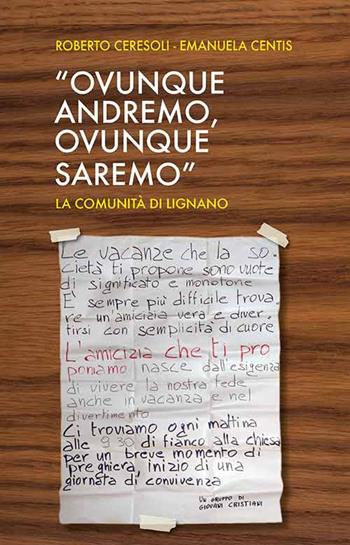 ROBERTO CERESOLI - EMANUELA CENTIS
“OVUNQUE
ANDREMO,
OVUNQUE
SAREMO”
LA COMUNITÀ DI LIGNANO
Le vacanze che la so_
cietà ti propone sono vuote
di significato e monotone
E' sempre più difficile trova_
re un'amicizia vera e diver_
tirsi con semplicità di cuore
L'amicizia che ti pro
poniamo nasce dall'esigenza
di vivere la nostra fede
anche in vacanza e nel
divertimento
Ci troviamo ogni mattina
alle 9.30 di fianco alla chiesa
per un breve momento di
preghiera, inizio di una
giornata di convivenza
UN GRUPPO DI
GIOVANI CRISTIANI